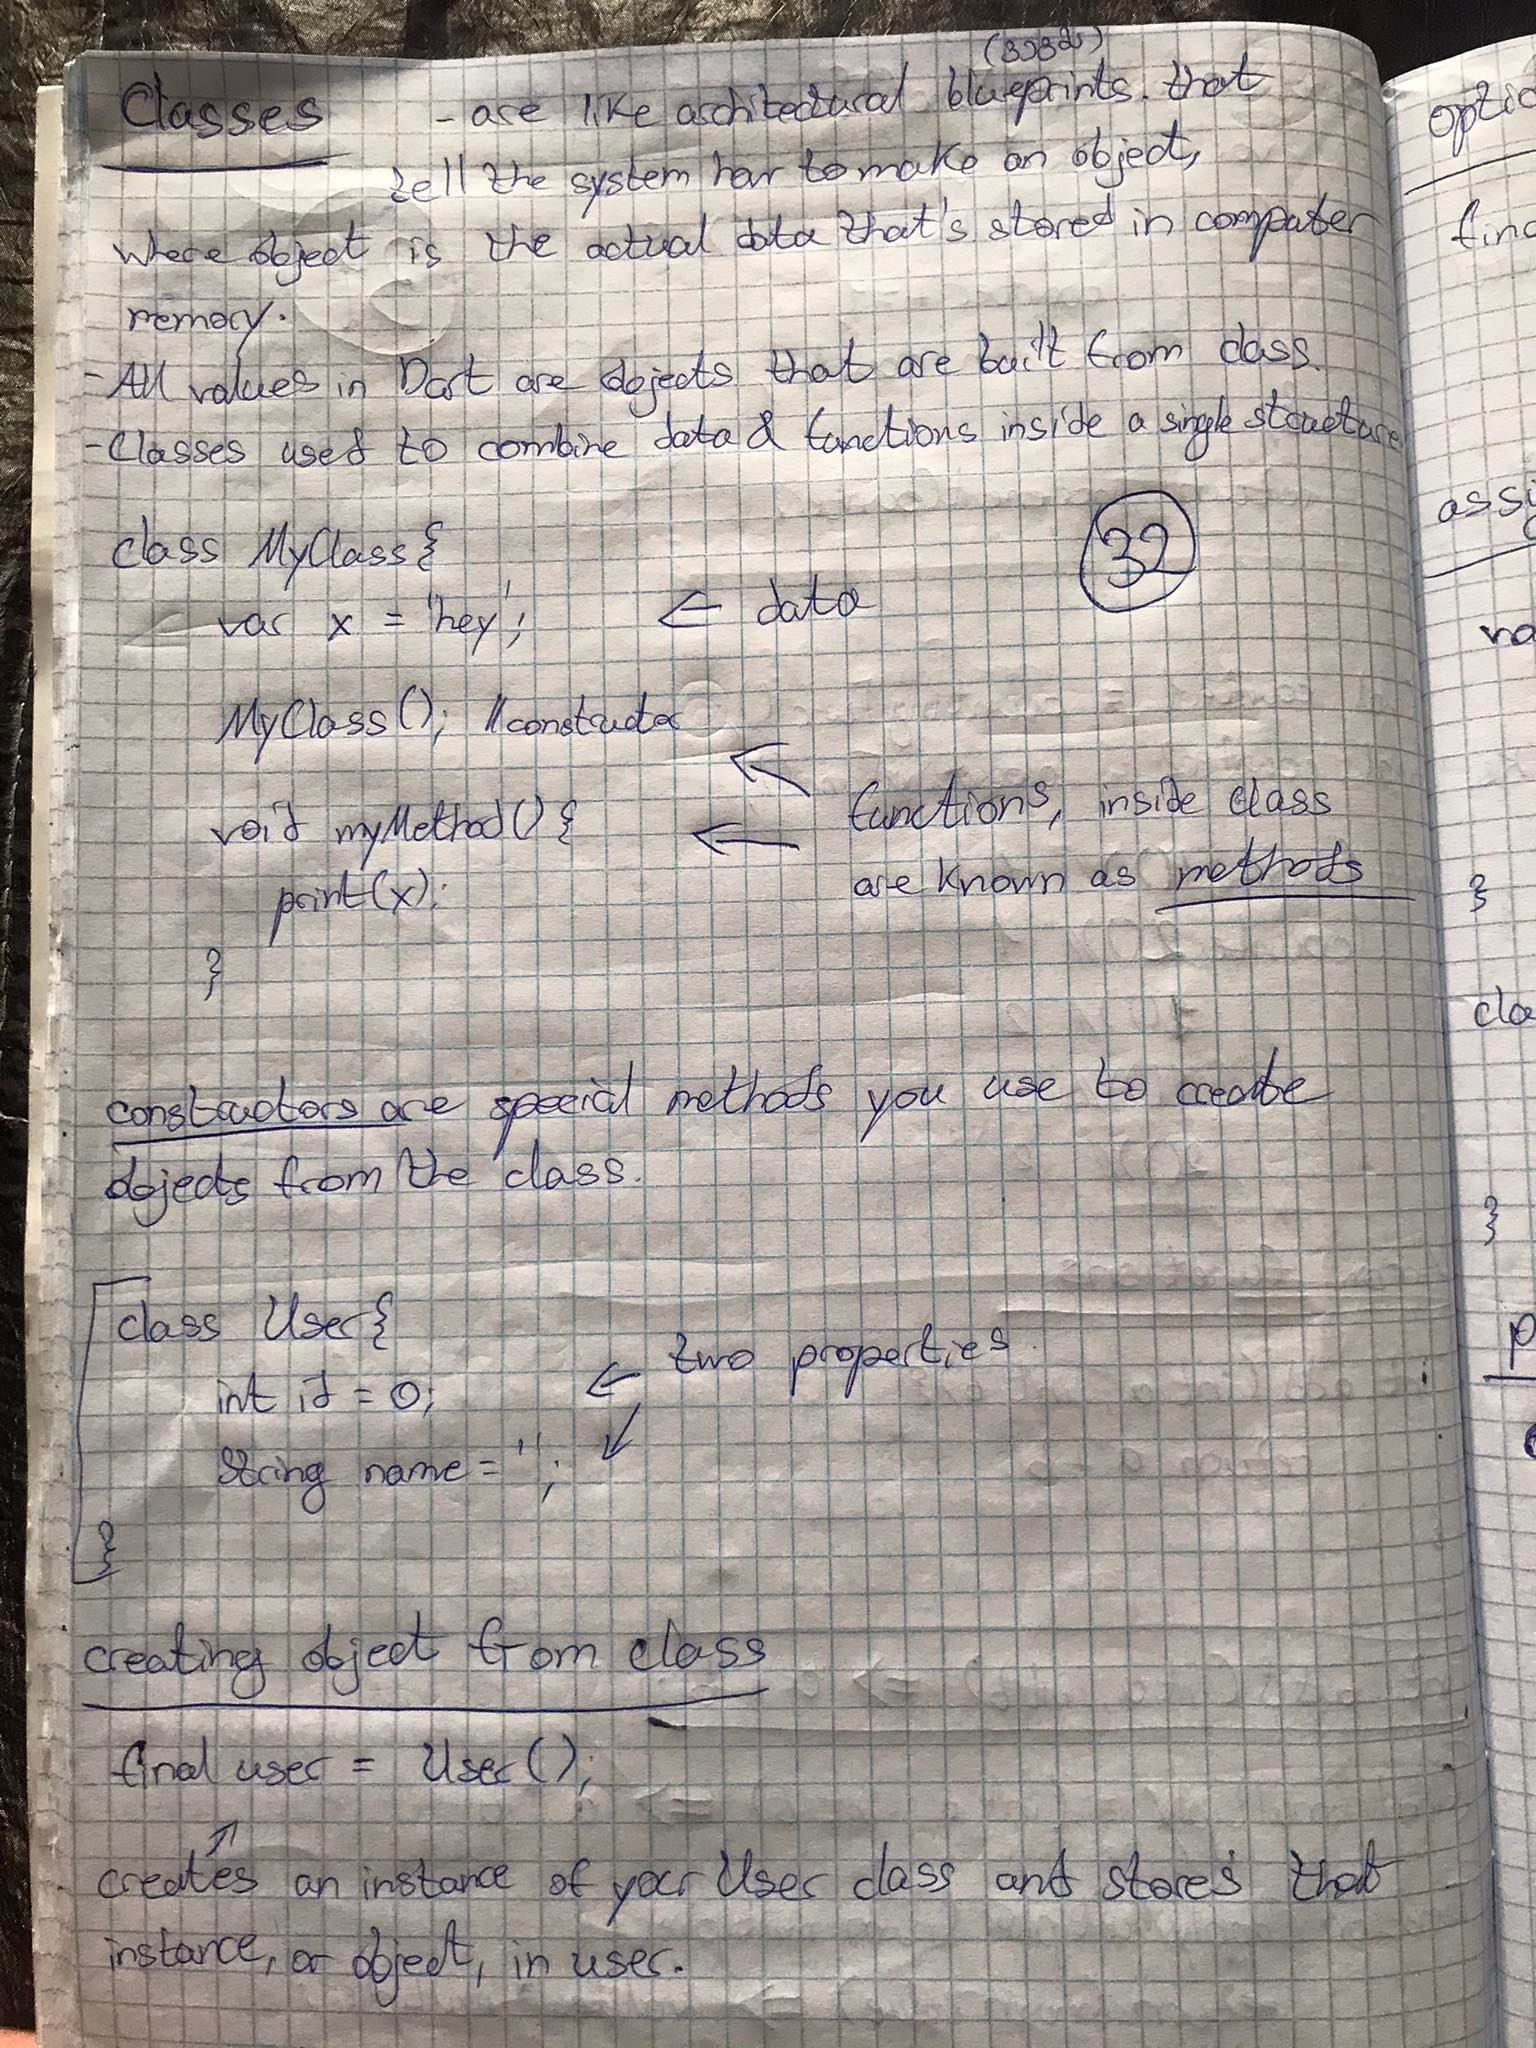 Classes - are like architectural blueprints. that
tell the system how to make an object,
where object is the actual data that's stored in computer
memory.
- All values in Dart are objects that are built from class.
- Classes used to combine data & functions inside a single structure
32
class MyClass{
var x = 'hey'; ← data
MyClass(); //constructor
void myMethod(){ ← functions, inside class
print(x); are known as methods
}
constructors are special methods you use to create
objects from the class.
class User{
int id = 0; ← two properties
String name = '';
}
creating object from class
final user = User();
creates an instance of your User class and stores that
instance, or object, in user.
optio
find
assi
va
}
cla
}
p